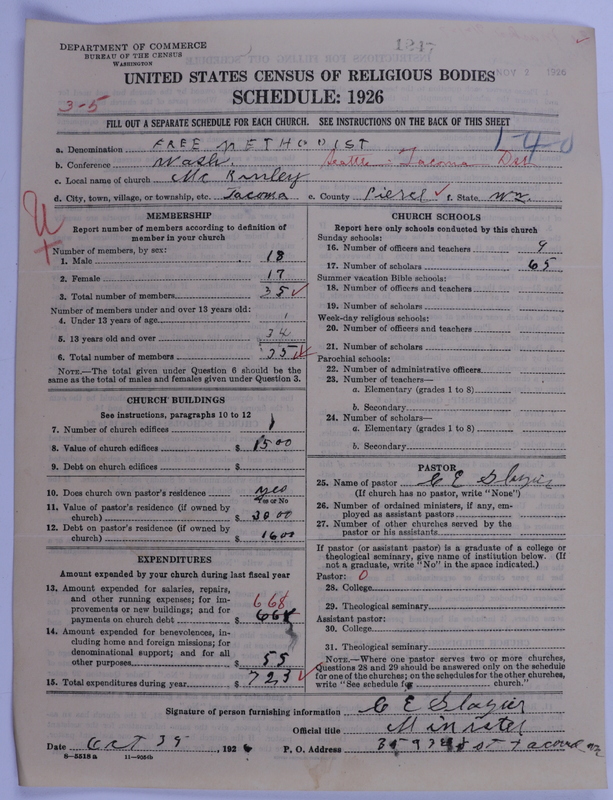 1247
DEPARTMENT OF COMMERCE
BUREAU OF THE CENSUS
WASHINGTON
NOV 2 1926
UNITED STATES CENSUS OF RELIGIOUS BODIES
3-5
SCHEDULE: 1926
FILL OUT A SEPARATE SCHEDULE FOR EACH CHURCH. SEE INSTRUCTIONS ON THE BACK OF THIS SHEET
140
a. Denomination FREE METHODIST
b. Conference Wash. Seattle-Tacoma Dist
c. Local name of church McKinley
d. City, town, village, or township, etc. Tacoma e. County Pierce f. State Wn.
MEMBERSHIP
Report number of members according to definition of
member in your church
Number of members, by sex:
1. Male 18
2. Female 17
3. Total number of members 35
Number of members under and over 13 years old:
4. Under 13 years of age 1
5. 13 years old and over 34
6. Total number of members 35
NOTE.—The total given under Question 6 should be
same as the total of males and females given under Question 3.
CHURCH BUILDINGS
See instructions, paragraphs 10 to 12
7. Number of church edifices 1
8. Value of church edifices $ 1500
9. Debt on church edifices $
10. Does church own pastor's residence yes
Yes or No
11. Value of pastor's residence (if owned by
church) $ 3000
12. Debt on pastor's residence (if owned by
church) $ 1600
EXPENDITURES
Amount expended by your church during last fiscal year
13. Amount expended for salaries, repairs,
and other running expenses; for im-
provements or new buildings; and for
payments on church debt $ 668
14. Amount expended for benevolences, in-
cluding home and foreign missions; for
denominational support; and for all
other purposes 55
15. Total expenditures during year $ 723
CHURCH SCHOOLS
Report here only schools conducted by this church
Sunday schools:
16. Number of officers and teachers 9
17. Number of scholars 65
Summer vacation Bible schools:
18. Number of officers and teachers
19. Number of scholars
Week-day religious schools:
20. Number of officers and teachers
21. Number of scholars
Parochial schools:
22. Number of administrative officers
23. Number of teachers—
a. Elementary (grades 1 to 8)
b. Secondary
24. Number of scholars—
a. Elementary (grades 1 to 8)
b. Secondary
PASTOR
25. Name of pastor C E Slagier
(If church has no pastor, write "None")
26. Number of ordained ministers, if any, em-
ployed as assistant pastors
27. Number of other churches served by the
pastor or his assistants
If pastor (or assistant pastor) is a graduate of a college or
theological seminary, give name of institution below. (If
not a graduate, write "No" in the space indicated.)
Pastor: 0
28. College
29. Theological seminary
Assistant pastor:
30. College
31. Theological seminary
NOTE.—Where one pastor serves two or more churches,
Questions 28 and 29 should be answered only on the schedule
for one of the churches; on the schedules for the other churches,
write "See schedule for church."
Signature of person furnishing information C E Slagier
Official title Minister
Date Oct 39, 1926 P. O. Address st Tacoma
8—5518 a 11—9054b